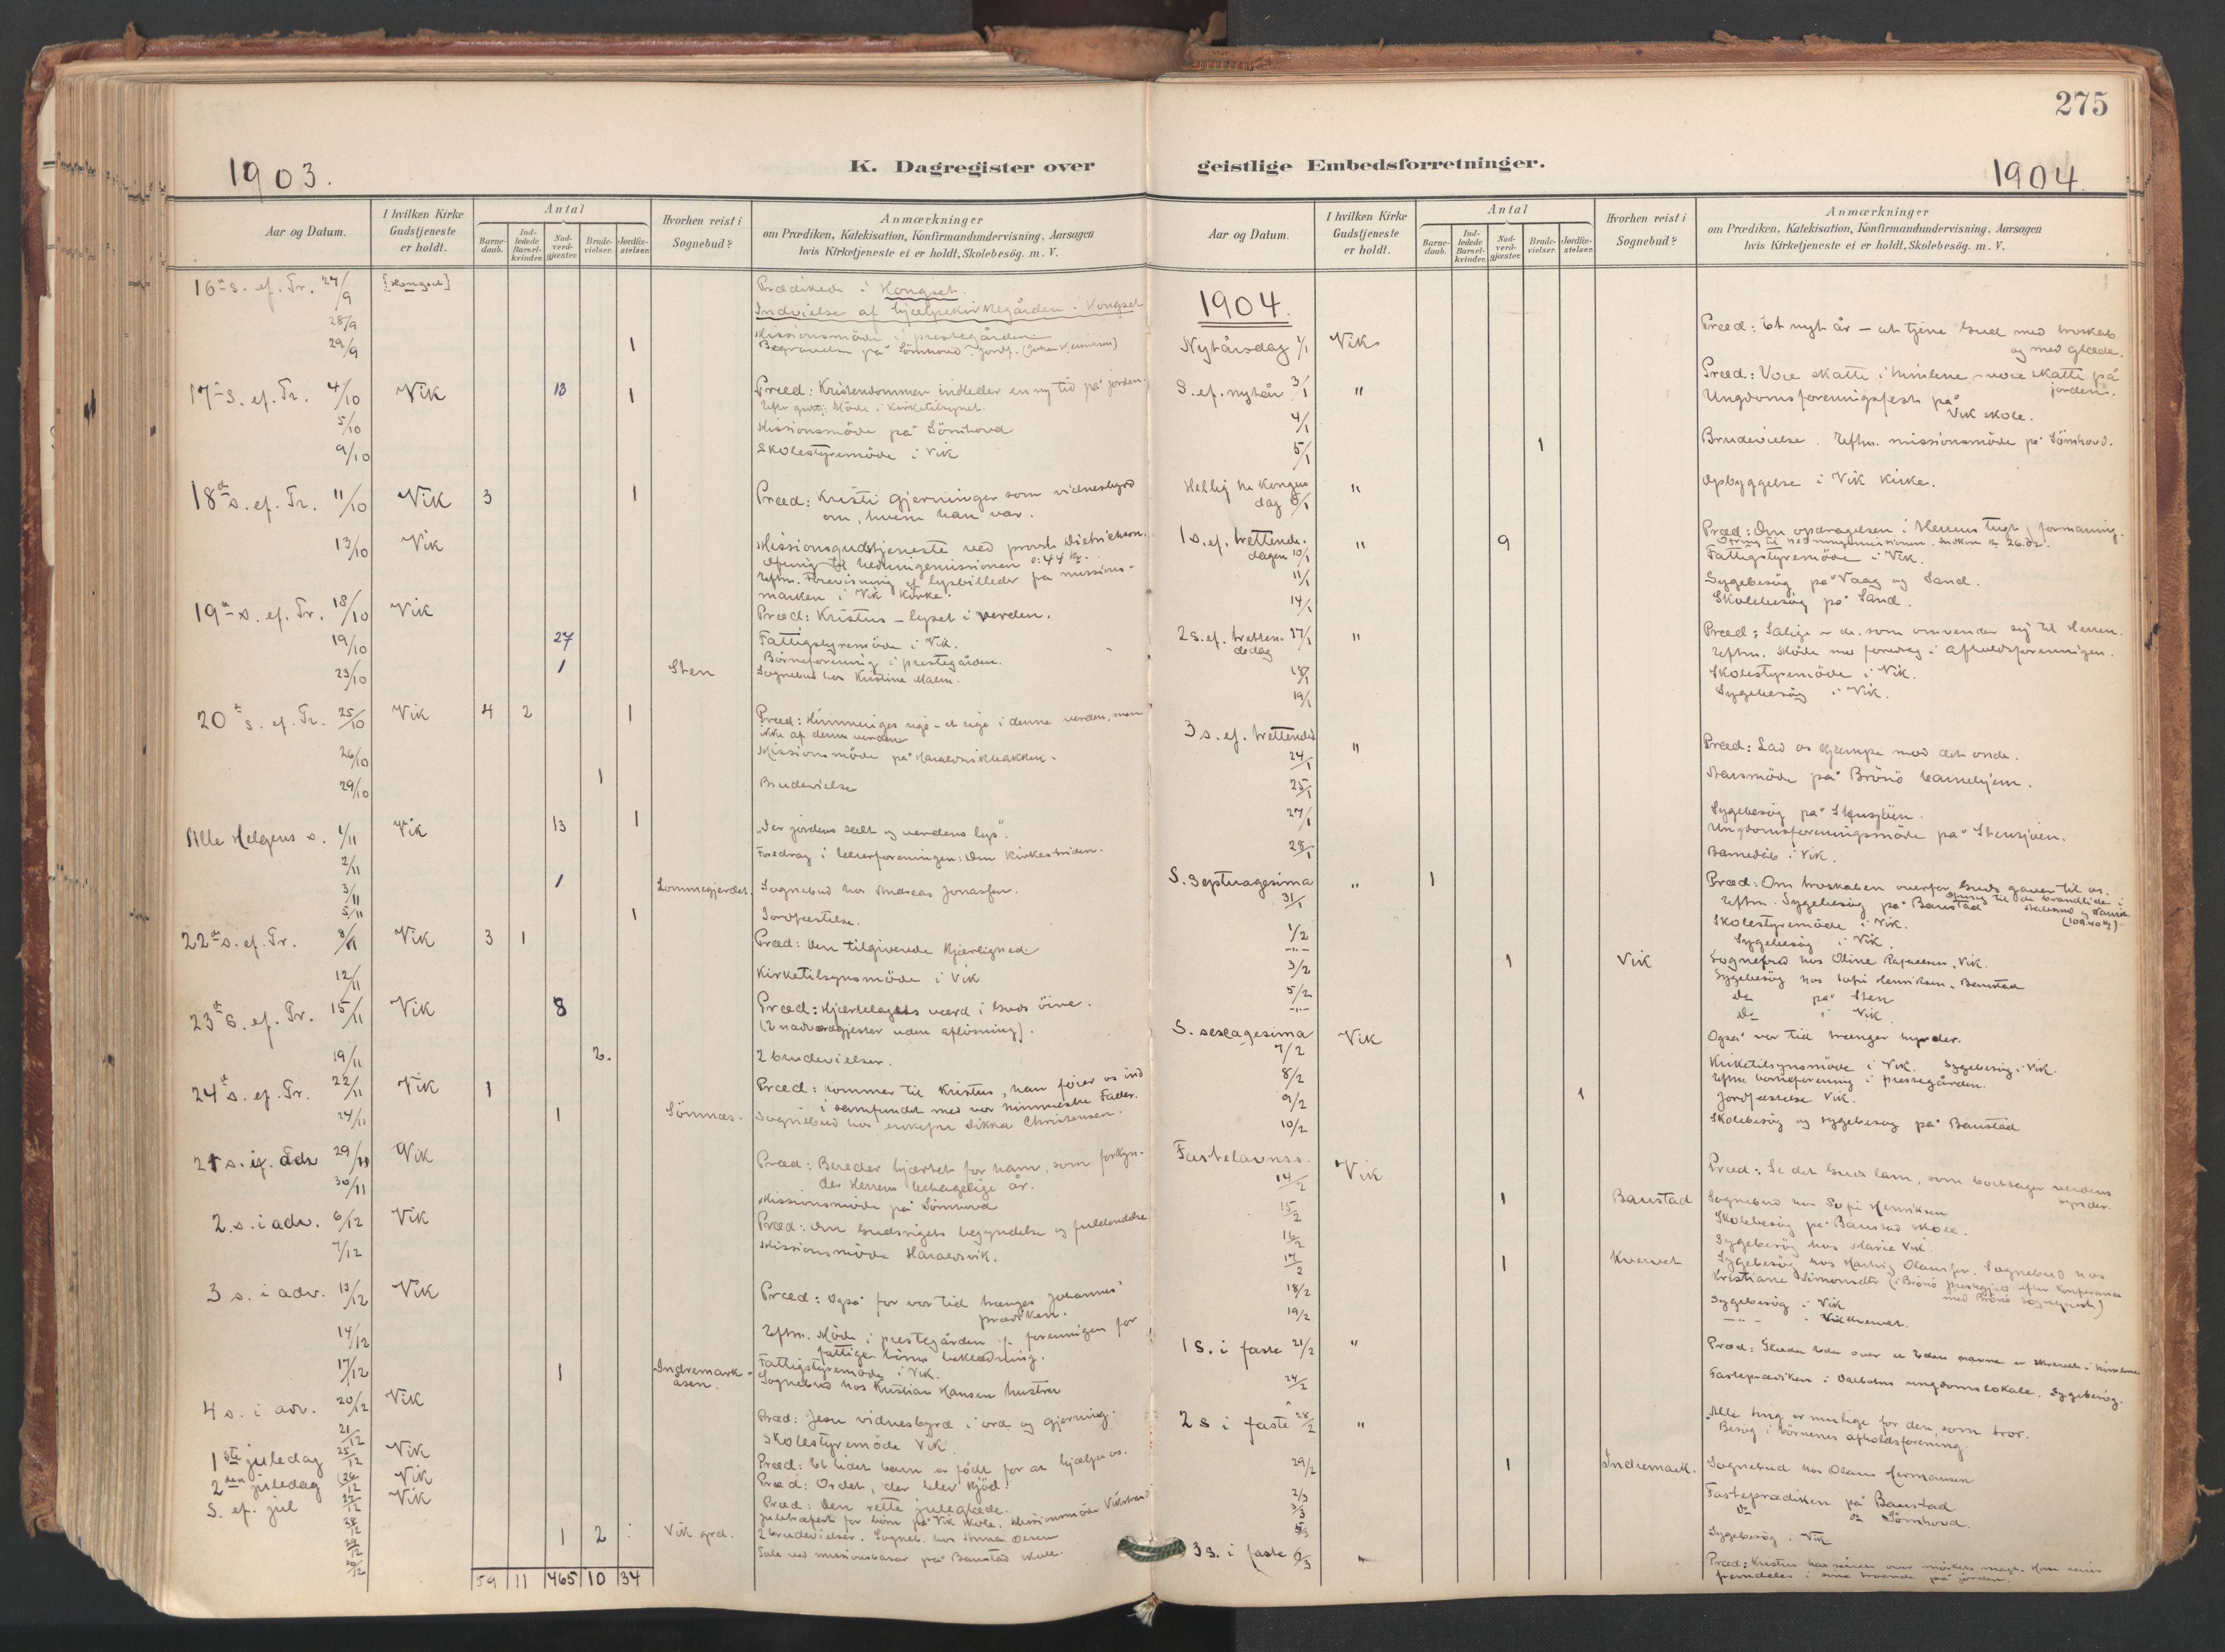 275
1903.
K. Dagregister over
geistlige Embedsforretninger.
1904.
Aar og Datum.
I hvilken Kirke Gudstjeneste er holdt.
Antal
Barnedaab.
Indledede Barselkvinder.
Nadverdgjester.
Brudevielser.
Jordfæstelser.
Hvorhen reist i Sognebud?
Anmærkninger
om Prædiken, Katekisation, Konfirmandundervisning, Aarsagen
hvis Kirketjeneste ei er holdt, Skolebesög. m. V.
16de s. ef. Tr. 27/9 [Hongset] Prædikede i Hongset.
28/9 Indvielse af hjælpekirkegården i Hongset
29/9 1 Missionsmöde i prestegården
Begravelse på Sömhovd
17de s. ef. Tr. 4/10 Vik 13 1 Præd: Kristendommen indleder en ny tid på jorden.
Efter gudstj. Möde i Kirketilsynet.
5/10 Missionsmöde på Sömhovd
9/10 Skolestyremöde i Vik
18de s. ef. Tr. 11/10 Vik 3 1 Præd: Kristi gjerninger som vidnesbyrd
om, hvem han var.
13/10 Vik Missionsgudstjeneste ved provst Dietrichson.
Ofring til hedningemissionen
Eftm. Forevisning af lysbilleder fra missions-
marken i Vik Kirke.
19de s. ef. Tr. 18/10 Vik Præd: Kristus – lyset i verden.
19/10 27 Fattigstyremöde i Vik.
Börneforening i prestegården.
23/10 1 Sten Sognebud hos Kristine Malm.
20de s. ef. Tr. 25/10 Vik 4 2 1 Præd: Himmeriges rige – et rige i denne verden, men
ikke af denne verden
26/10 Missionsmöde på
29/10 1 Brudevielse
Alle Helgens s. 1/11 Vik 13 1 „I er jordens salt og verdens lys“.
2/11 Foredrag i lærerforeningen: Om Kirkestriden.
3/11 1 Lommegjerdet. Sognebud hos Andreas Jonassen.
5/11 1 Jordfæstelse.
22de s. ef. Tr. 8/11 Vik 3 1 Præd: Den tilgivende Kjærlighed
12/11 Kirketilsynsmöde i Vik
23de s. ef. Tr. 15/11 Vik 8 Præd: Hjertelagets værd i Guds öine.
(2 nadverdgjester uden aflösning).
19/11 2. 2 brudevielser.
24de s. ef. Tr. 22/11 Vik 1 Præd: kommer til Kristus, han föier os ind
i samfundet med vor himmelske Fader.
24/11 1 Sömnæs. Sognebud hos enkefru Dikka Christensen.
29/11 Vik Præd: Bereder hjertet for ham, som forkyn-
der Herrens behagelige år.
30/11 Missionsmöde på Sömhovd
2. s. i adv. 6/12 Vik Præd: Om Gudsrigets begyndelse og fuldendelse
7/12 Missionsmöde Haraldsvik.
3 s. i adv. 13/12 Vik Præd: Også for vor tid trænges Johannes'
prædiken.
14/12 Eftm. Möde i prestegården f. foreningen for
fattige börns beklædning.
Fattigstyremöde i Vik.
17/12 1 Indremark-
åsen. Sognebud hos Kristian Hansens hustru
4 s. i adv. 20/12 Vik Præd: Jesu vidnesbyrd i ord og gjerning.
21/12 Skolestyremöde Vik.
1ste juledag 25/12 Vik Præd: Et lidet barn er födt for at hjælpe os.
2den juledag 26/12 Vik Præd: Ordet, der blev kjöd.
S. ef. jul 27/12 Vik Præd: Den rette juleglæde.
28/12 Juletræfest for börn på Vik skole. Missionsmöde Vikstrand
29/12 1 2 Vik grd. 2 brudevielser. Sogneb. hos Anna Olsen
Tale ved missionsbasar på Baustad skole.
59 11 465 10 34
Aar og Datum.
I hvilken Kirke Gudstjeneste er holdt.
Antal
Barnedaab.
Indledede Barselkvinder.
Nadverdgjester.
Brudevielser.
Jordfæstelser.
Hvorhen reist i Sognebud?
Anmærkninger
om Prædiken, Katekisation, Konfirmandundervisning, Aarsagen
hvis Kirketjeneste ei er holdt, Skolebesög. m. V.
1904.
Nytårsdag 1/1 Vik Præd: Et nyt år – at tjene Gud med troskab
og med glæde.
S. ef. nytår 3/1 " Præd: Vore skatte i himlene – vore skatte på
jorden.
4/1 Ungdomsforeningsfest på
Vik skole.
5/1 1 Brudevielse. Eftm. missionsmöde på Sömhovd.
Hellig tre Kongers
dag 6/1 " Opbyggelse i Vik Kirke.
1 s. ef. trettende-
dagen 10/1 " 9 Præd: Om opdragelsen i Herrens tugt og formaning.
Fattigstyremöde i Vik.
11/1 Sygebesög på Vaag og Sand.
14/1 Skolebesög på Sand.
2 s. ef. tretten-
dedag 17/1 " Præd: Salige er de, som omvender sig til Herren.
Eftm. Möde med foredrag i Afholdsforeningen.
18/1 Skolestyremöde i Vik.
19/1 Sygebesög i Vik.
3 s. ef. trettended
24/1 " Præd: Lad os kjæmpe mod det onde.
25/1 Årsmöde på Brönö barnehjem.
27/1 Sygebesög på Stensjöen.
Ungdomsforeningsmöde på Stensjöen.
28/1 Barnedåb i Vik.
S. Septuagesima
31/1 " 1 Præd: Om troskaben overfor Guds gaver til os.
Eftm. Sygebesög på Baustad
1/2 Skolestyremöde i Vik.
Sygebesög i Vik.
3/2 1 Vik Sognebud hos Oline Rafaelsen, Vik.
5/2 Sygebesög hos Sofi Henriksen. Baustad
Do på Sten
Do i Vik
S. sexagesima
7/2 Vik Også vor tid trænger hyrder.
8/2 Kirketilsynsmöde i Vik. Sygebesög i Vik.
Eftm börneforening i prestegården.
9/2 1 Jordfæstelse Vik.
10/2 Skolebesög og sygebesög på Baustad
Fastelavnss.
14/2 Vik Præd: Se det Guds lam, som borttager verdens
synder.
15/2 1 Baustad Sognebud hos Sofi Henriksen
Skolebesög på Baustad skole.
16/2 Sygebesög hos Marie Vik.
17/2 1 Kvervet Sygebesög hos Hartvig Olausen. Sognebud hos
Kristiane Simonsdtr (i Brönö prestegjeld efter konferance
med Brönö sogneprest)
18/2 Sygebesög i Vik
19/2
1 s. i faste 21/2 " Præd: Glæder Eder over at Eders navne er skrevet i himlene
24/2 Fasteprædiken i Dalbotns ungdomslokale. Sygebesög.
2 s i faste 28/2 " Alle ting er mulige for den, som tror.
Besög i börnenes afholdsforening.
29/2 1 Indremark. Sognebud hos Olaus Hermansen
2/3 Fasteprædiken på Baustad
3/3 Do Do Sömhovd.
5/3 Sygebesög i Vik
3 s. i faste 6/3 " Præd: Kristus har seiret over mörkets magt. Han seirer
fremdeles i sine troende på jorden.